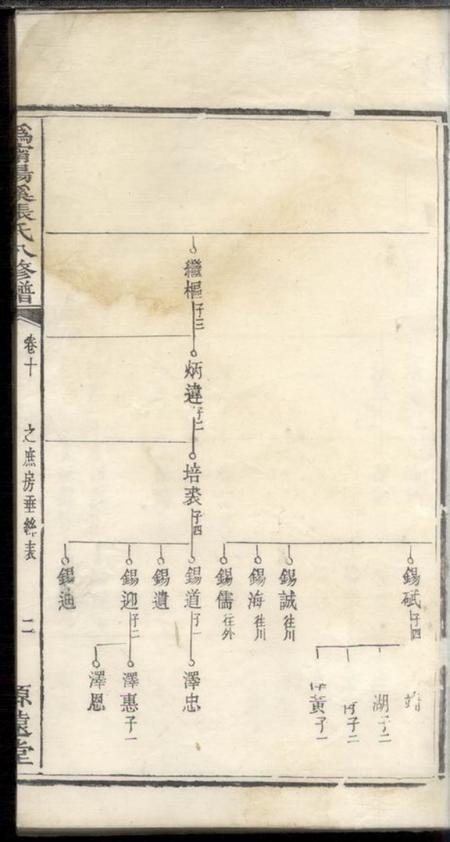 繼樞 子三
炳違 子二
培裘 子四
錫砥 子四
錫誠 往川
錫海 往川
錫儒 往外
錫道 子一
錫遺
錫迎 子二
錫迪
湖 子二
子二
黃 子一
澤忠
澤惠 子一
澤恩
溈甯湯溪張氏八修譜
卷十
之庶房垂絲表
二
源遠堂